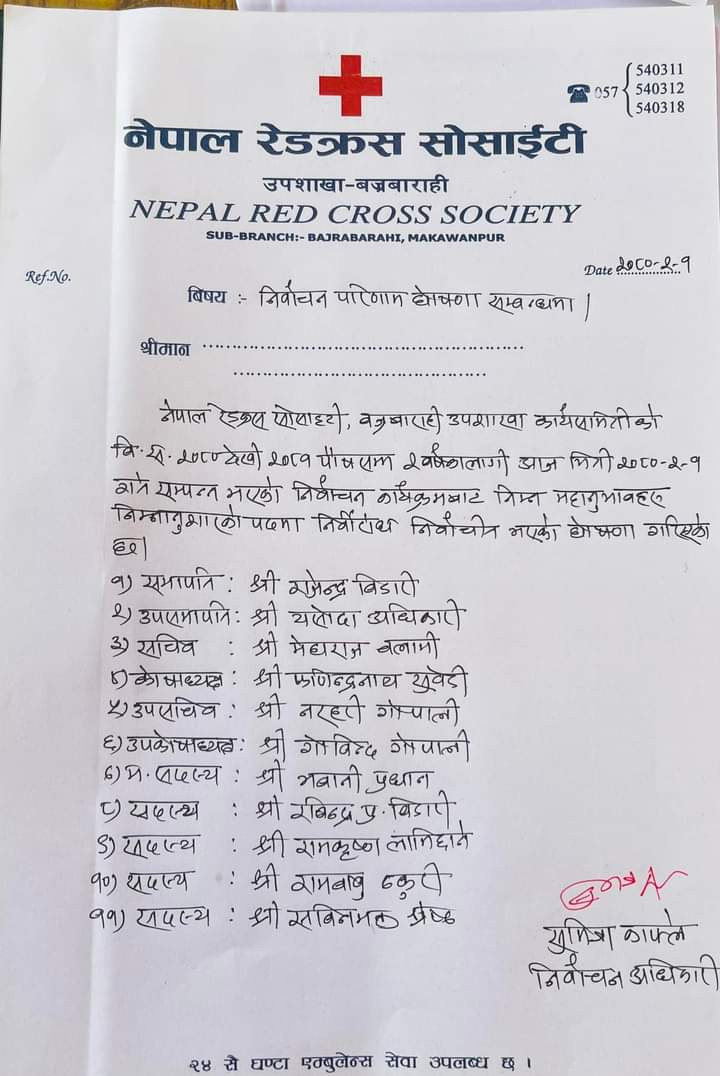 540311
☎057 { 540312
540318
नेपाल रेडक्रस सोसाईटी
उपशाखा-बज्रबाराही
NEPAL RED CROSS SOCIETY
SUB-BRANCH:- BAJRABARAHI, MAKAWANPUR
Ref.No.
Date २०८०-२-१
बिषय :- निर्वाचन परिणाम घोषणा सम्बन्धमा।
श्रीमान ..................................................
........................................
नेपाल रेडक्रस सोसाइटी, बज्रबाराही उपशाखा कार्यसमितीको
वि.सं. २०८० देखी २०८१ पौषसम्म २ वर्षकालागी आज मिती २०८०-२-१
गते सम्पन्न भएको निर्वाचन कार्यक्रमबाट निम्न महानुभावहरु
निम्नानुशारको पदमा निर्विरोध निर्वाचीत भएको घोषणा गरिएको
छ।
१) सभापति : श्री राजेन्द्र विडारी
२) उपसभापति: श्री यसोदा अधिकारी
३) सचिव : श्री मेघराज बलामी
४) कोषाध्यक्ष : श्री फणिन्द्रनाथ सुवेदी
५) उपसचिव : श्री नरहरी गोपाली
६) उपकोषाध्यक्ष: श्री गोविन्द गोपाली
७) म. सदस्य : श्री भवानी प्रधान
८) सदस्य : श्री रबिन्द्र प्र. विडारी
९) सदस्य : श्री रामकृष्ण लामिछाने
१०) सदस्य : श्री रामबाबु ठकुरी
११) सदस्य : श्री सबिनमल श्रेष्ठ
सुमित्रा काफ्ले
निर्वाचन अधिकारी
२४ सै घण्टा एम्बुलेन्स सेवा उपलब्ध छ ।